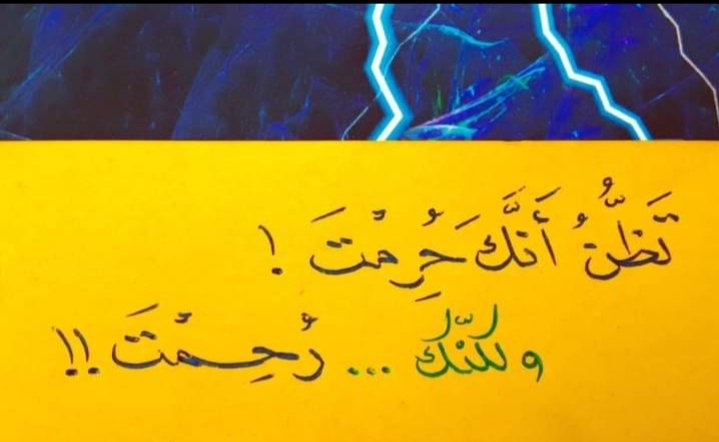 تَظُنُّ أَنَّكَ حُرِمْتَ !
ولكنَّكَ ... رُحِمْتَ !!